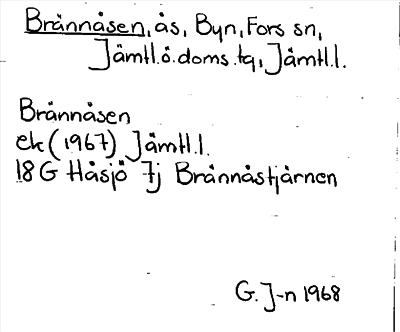 Brånnåsen, ås, Byn, Fors sn,
Jåmtl.ö.doms.tg, Jåmtl.l.
Brånnåsen
ek (1967) Jåmtl.l.
18 G Håsjö 7j Brånnåstjårnen
G. J-n 1968